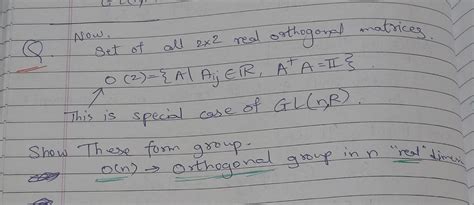 Now,
Q. Set of all 2x2 real orthogonal matrices.
O(2)={A| Aij ∈ ℝ, A^T A=𝕀}
This is special case of GL(n,R).
Show These form group.
O(n) → Orthogonal group in n "real"